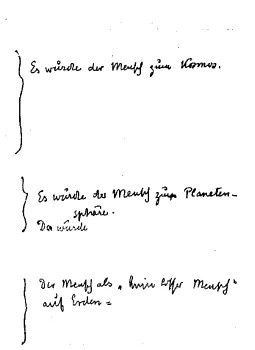 Es würde der Mensch zum Kosmos.
Es würde der Mensch zum Planeten-
sphäre.
Da würde
Der Mensch als „ Mensch“
auf Erden =